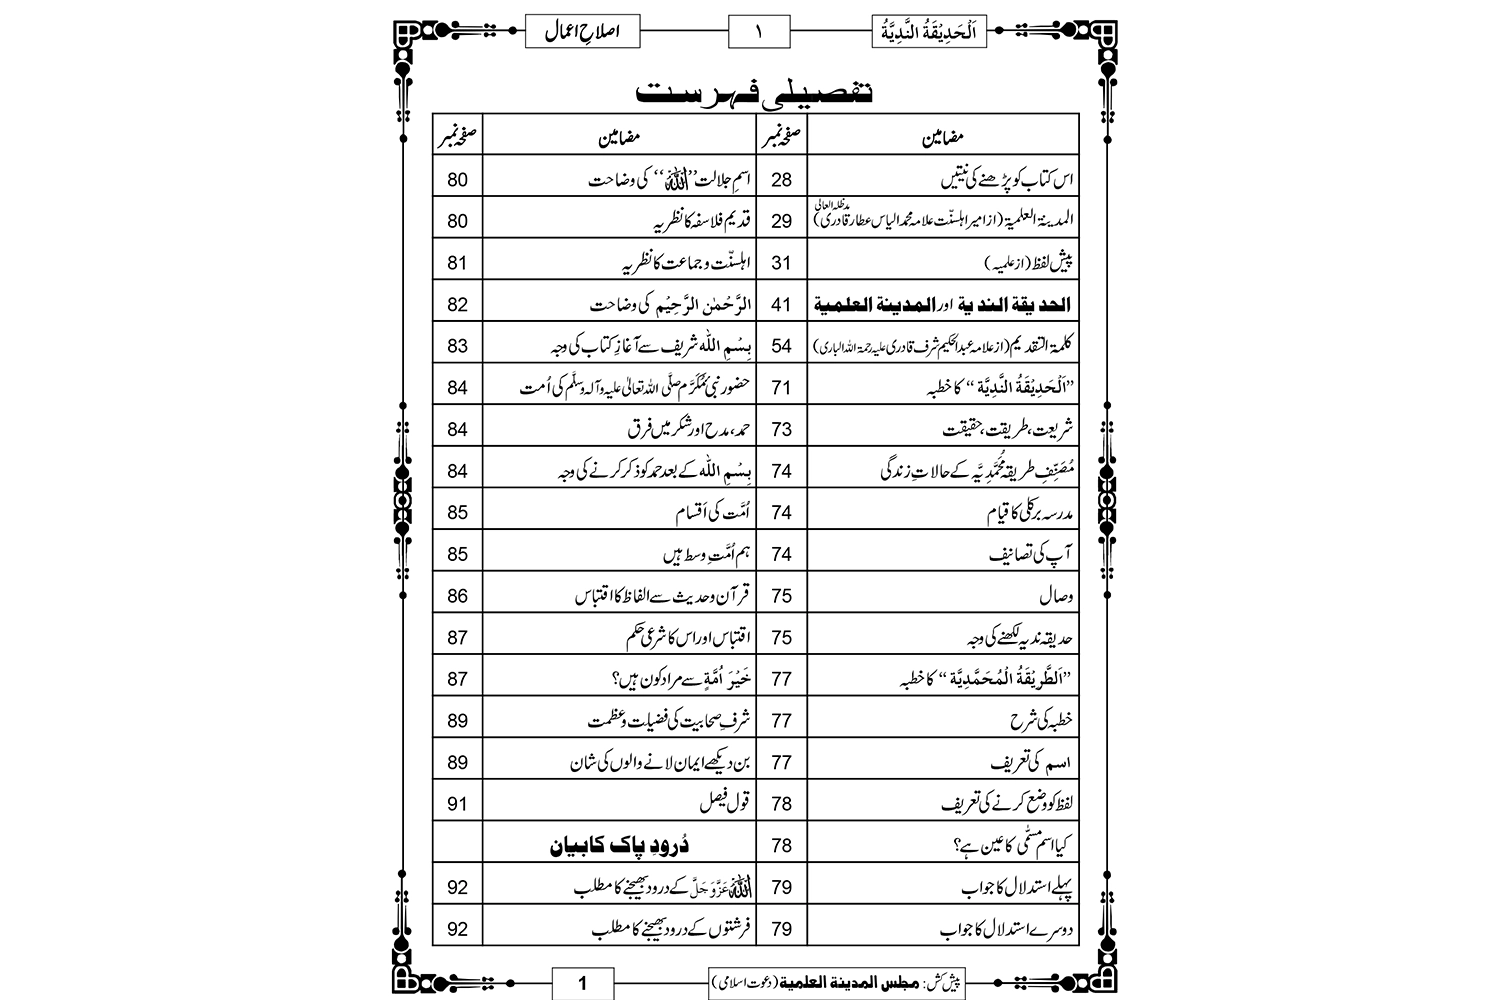 اَلْحَدِيْقَةُ النَّدِيَّةُ ١ اصلاحِ اعمال
تفصیلی فہرست
مضامین صفحہ نمبر مضامین صفحہ نمبر
اس کتاب کو پڑھنے کی نیتیں 28 اسمِ جلالت ’’اللہ‘‘ کی وضاحت 80
المدینۃ العلمیۃ (از امیر اہلسنّت علامہ محمد الیاس عطار قادری مدظلہ العالی) 29 قدیم فلاسفہ کا نظریہ 80
پیش لفظ (از علمیہ) 31 اہلسنّت و جماعت کا نظریہ 81
الحدیقة الندیة اور المدینة العلمیة 41 الرَّحْمٰن الرَّحِيْم کی وضاحت 82
کلمۃ التقدیم (از علامہ عبدالحکیم شرف قادری علیہ رحمۃ اللہ الباری) 54 بِسْمِ اللّٰه شریف سے آغازِ کتاب کی وجہ 83
’’اَلْحَدِيْقَةُ النَّدِيَّة‘‘ کا خطبہ 71 حضور نبیٔ مُکَرَّم صلَّی اللہ تعالیٰ علیہ وآلہ وسلَّم کی اُمت 84
شریعت، طریقت، حقیقت 73 حمد، مدح اور شکر میں فرق 84
مُصَنِّفِ طریقہ مُحَمَّدِیَّہ کے حالاتِ زندگی 74 بِسْمِ اللّٰه کے بعد حمد کو ذکر کرنے کی وجہ 84
مدرسہ برکلی کا قیام 74 اُمَّت کی اَقسام 85
آپ کی تصانیف 74 ہم اُمَّتِ وسط ہیں 85
وصال 75 قرآن وحدیث سے الفاظ کا اقتباس 86
حدیقہ ندیہ لکھنے کی وجہ 75 اقتباس اور اس کا شرعی حکم 87
’’اَلطَّرِيْقَةُ الْمُحَمَّدِيَّة‘‘ کا خطبہ 77 خَيْرَ اُمَّةٍ سے مراد کون ہیں؟ 87
خطبہ کی شرح 77 شرفِ صحابیت کی فضیلت وعظمت 89
اسم کی تعریف 77 بن دیکھے ایمان لانے والوں کی شان 89
لفظ کو وضع کرنے کی تعریف 78 قول فیصل 91
کیا اسم مسمّٰی کا عین ہے؟ 78 دُرودِ پاک کا بیان
پہلے استدلال کا جواب 79 اللہ عَزَّوَجَلَّ کے درود بھیجنے کا مطلب 92
دوسرے استدلال کا جواب 79 فرشتوں کے درود بھیجنے کا مطلب 92
پیش کش: مجلس المدینة العلمیة (دعوت اسلامی) 1